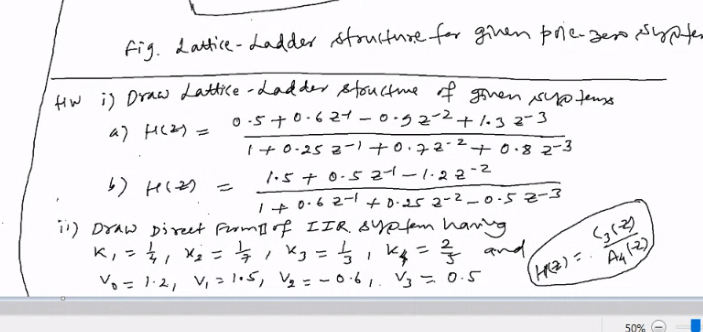 Fig. Lattice-Ladder structure for given pole-zero system
HW i) Draw Lattice-Ladder structure of given systems
a) H(z) = 0.5 + 0.6 z-1 - 0.9 z-2 + 1.3 z-3
1 + 0.25 z-1 + 0.7 z-2 + 0.8 z-3
b) H(z) = 1.5 + 0.5 z-1 - 1.2 z-2
1 + 0.6 z-1 + 0.25 z-2 - 0.5 z-3
ii) Draw Direct Form II of IIR system having
K1 = 1/4, K2 = 1/7, K3 = 1/3, K4 = 2/5 and
V0 = 1.2, V1 = 1.5, V2 = -0.6, V3 = 0.5
H(z) = C3(z)/A4(z)
50%